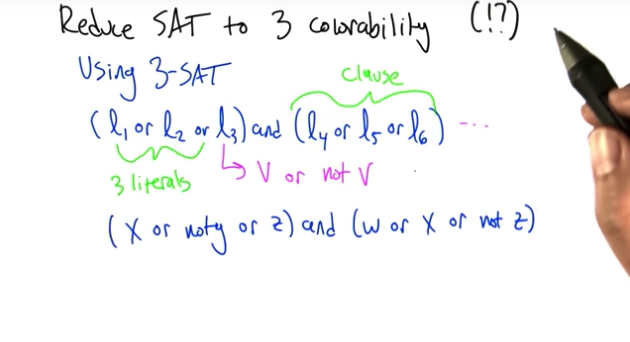 Reduce SAT to 3 colorability (!?)
Using 3-SAT
clause
(l1 or l2 or l3) and (l4 or l5 or l6) ...
3 literals
V or not V
(x or not y or z) and (w or x or not z)